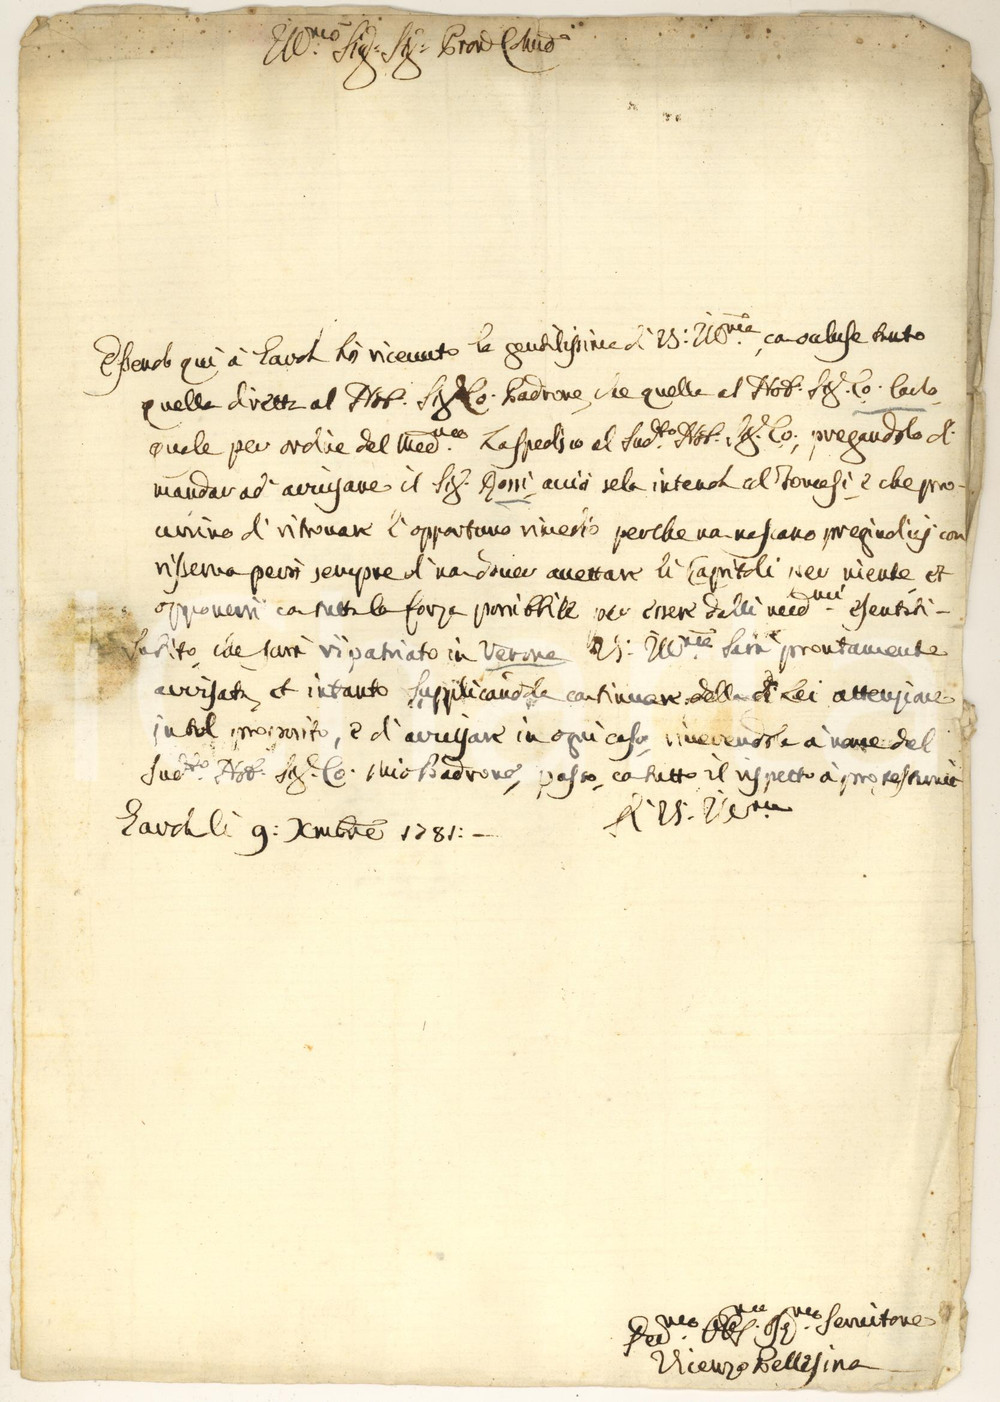 Ill.mo Sig.r Sig.r Pron Colmo
Essendo qui à Lavol hò ricevuto la gentilissima di V.S. Ill.ma, con acluse tanto
quella diretta al Nob. Sig.r Co. Padrone, che quella al Nob. Sig.r Co. Carlo,
quale per ordine del med.mo La spedisco al Sud.to Nob. Sig.r Co., pregandolo di
mandar ad avvisare il Sig.r Rossi, acciò se la intenda col Tomasi, e che pro-
curino di ritrovare l'opportuno rimedio perche non nascano pregiudicij con
riserva però sempre di non dover accettare li Capitoli per niente, et
opporversi con tutta la forza possibile per essere dalli med.mi esentati -
Subito che sarà ripatriato in Verona V.S. Ill.ma sarà prontamente
avvisata, et intanto supplicandola continuare della di Lei attenzione
in tal proposito, e di avvisare in ogni caso, riverendola à nome del
Sud.to Nob. Sig.r Co. mio Padrone, passo con tutto il rispetto à protestarmi
Lavol li 9: Xmbre 1781: -
Di V.S. Ill.ma
Servitore
Vicenzo Bellesina